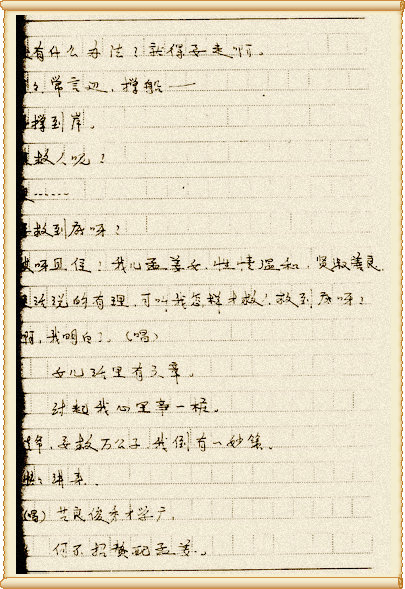 有什么办法？就得要走啊。
常言道，撑船——
撑到岸。
救人呢？
……
救到底呀？
呀且住！我儿孟姜女，性情温和，贤淑善良，
话说的有理，可叫我怎样才救人救到底呀？
啊，我明白了。（唱）
女儿话里有文章。
讨起我心里事一桩。
要救万公子，我倒有一妙策。
讲来。
（唱）范良俊秀才学广，
何不招赘配孟姜。